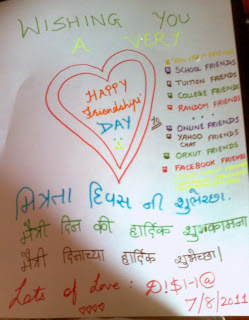 WISHING YOU
A VERY
HAPPY
Friendships'
DAY
SCHOOL FRIENDS
TUITION FRIENDS
COLLEGE FRIENDS
RANDOM FRIENDS
....
ONLINE FRIENDS
YAHOO FRIENDS
CHAT
ORKUT FRIENDS
FACEBOOK FRIENDS
मित्रता दिवस नी शुभेच्छा.
मैत्री दिन की हार्दिक शुभकामना
मैत्री दिनाच्या हार्दिक शुभेच्छा!
Lots of Love: D!$I-I@
7/8/2011